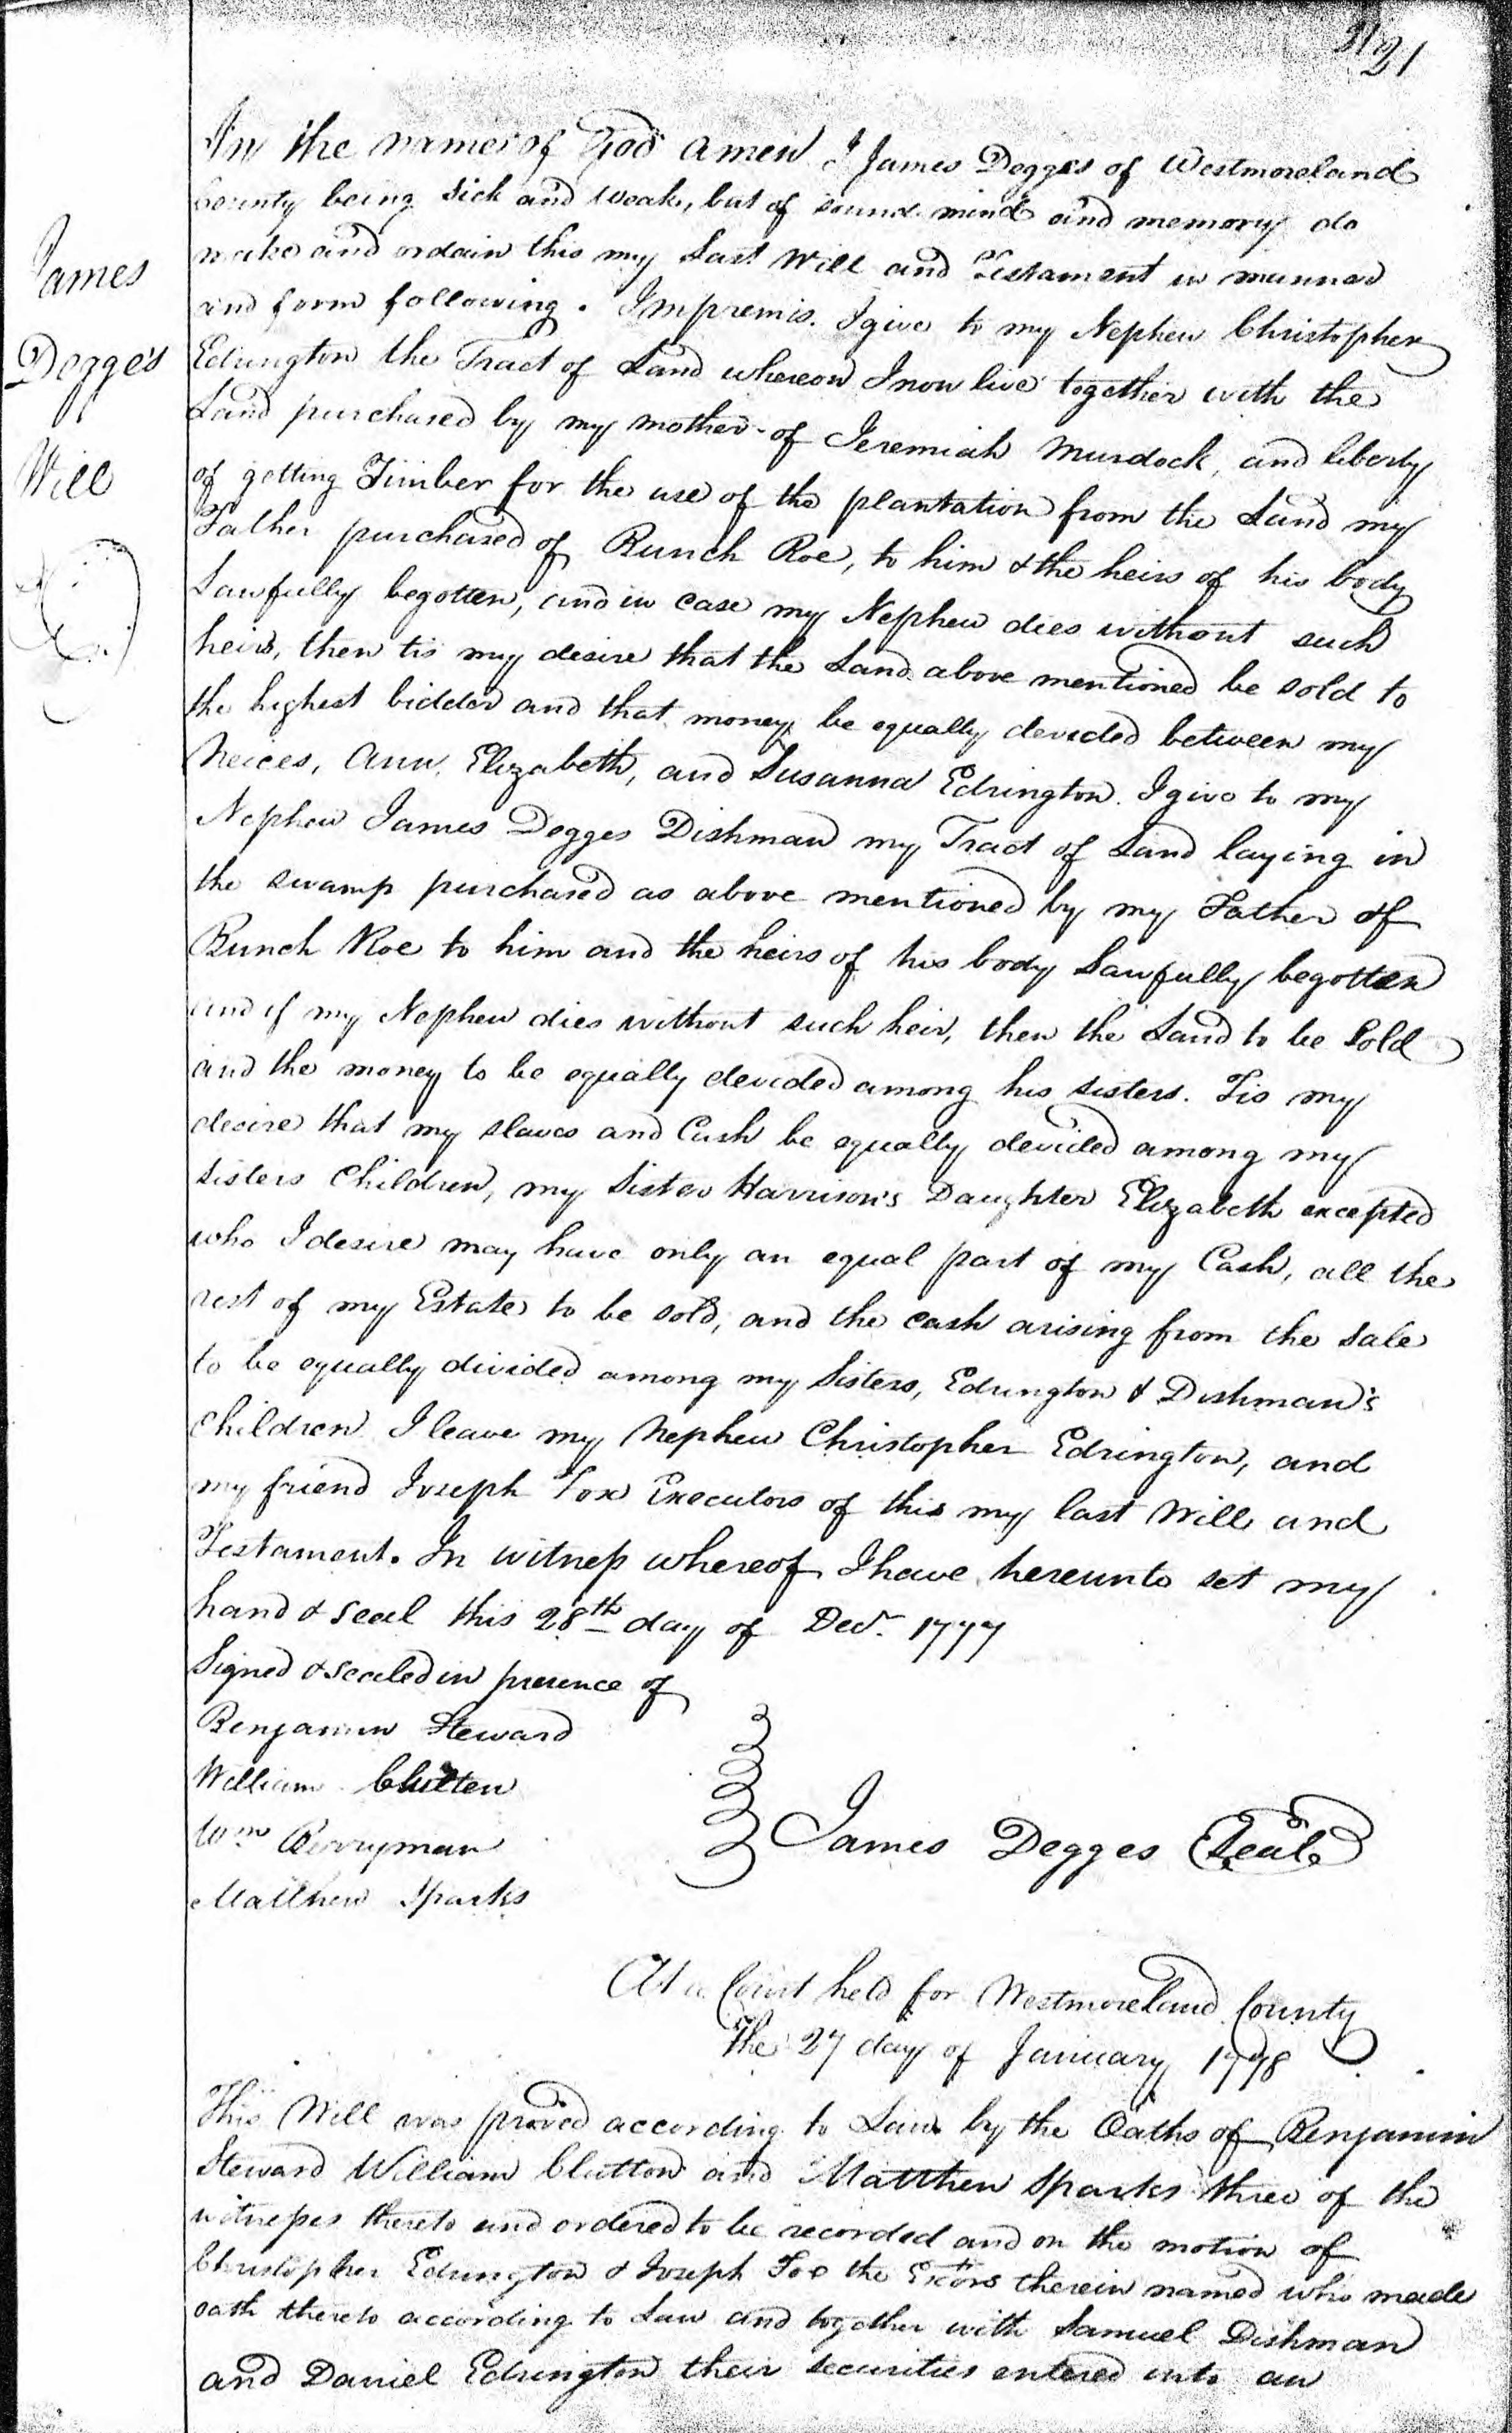 James
Degges
Will
In the name of God amen I James Degges of Westmoreland
County being sick and weak, but of sound mind and memory do
make and ordain this my Last Will and Testament in manner
and form following. Impremis. I give to my Nephew Christopher
Edrington the Tract of Land whereon I now live together with the
Land purchased by my mother of Jeremiah Murdock, and liberty
of getting Timber for the use of the plantation from the Land my
Father purchased of Bunch Roe, to him & the heirs of his body
Lawfully begotten, and in case my Nephew dies without such
heirs, then tis my desire that the Land above mentioned be sold to
the highest bidder and that money be equally devided between my
Neices, Ann, Elizabeth, and Susanna Edrington. I give to my
Nephew James Degges Dishman my Tract of Land laying in
the swamp purchased as above mentioned by my Father of
Bunch Roe to him and the heirs of his body Lawfully begotten
and if my Nephew dies without such heir, then the Land to be Sold
and the money to be equally devided among his sisters. Tis my
desire that my slaves and Cash be equally devided among my
sisters Children, my Sister Harrison's Daughter Elizabeth excepted
who I desire may have only an equal part of my Cash, all the
rest of my Estate to be sold, and the cash arising from the sale
to be equally divided among my Sisters, Edrington & Dishman's
Children I leave my Nephew Christopher Edrington, and
my friend Joseph Fox Executors of this my last Will and
Testament. In witness whereof I have hereunto set my
hand & seal this 28th day of Decr. 1777
Signed & sealed in presence of
Benjamin Steward
William Chilten
Wm Berryman
Matthew Sparks
James Degges Seal
At a Court held for Westmoreland County
The 27 day of January 1778
This Will was proved according to Law by the Oaths of Benjamin
Steward William Clutton and Matthew Sparks three of the
witnesses thereto and ordered to be recorded and on the motion of
Christopher Edrington & Joseph Fox the Exctors therein named who made
oath thereto according to Law and together with Samuel Dishman
and Daniel Edrington their securities entered into an